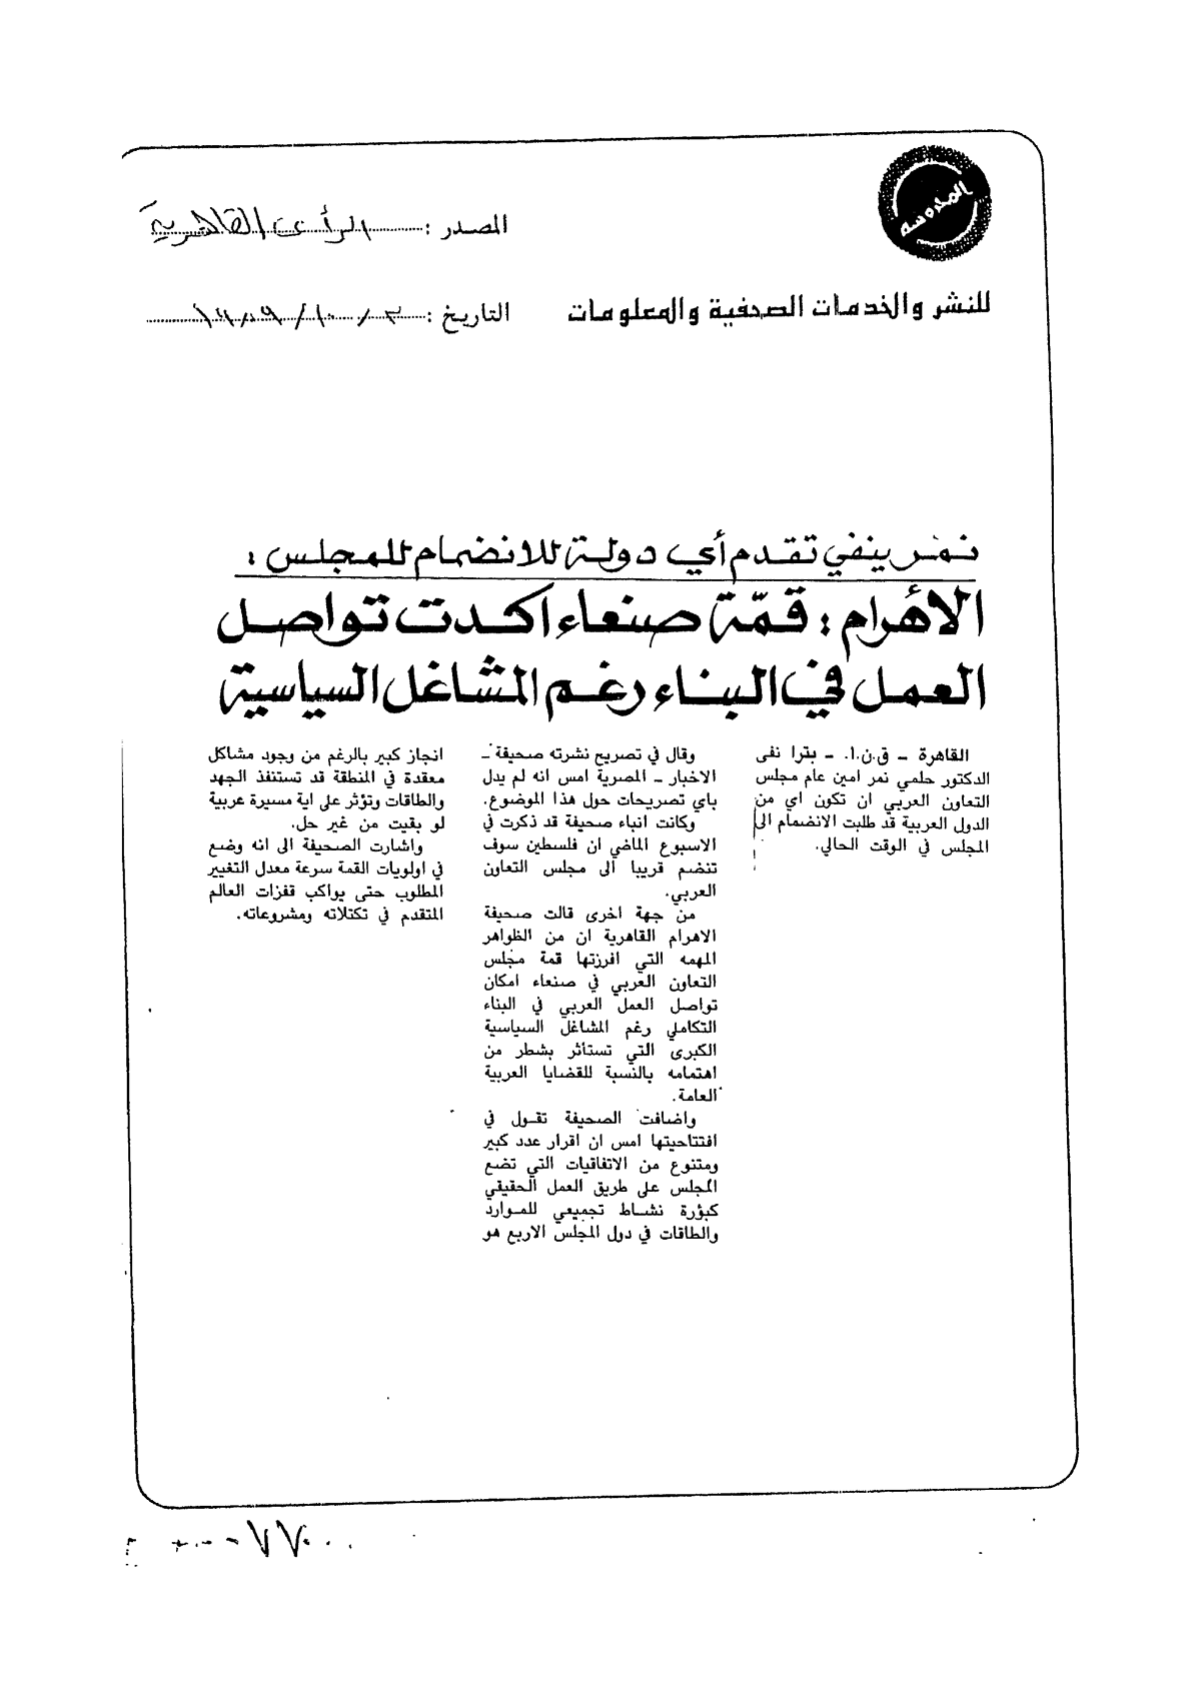 المدوسة
المصدر : الرأى القاهرية
للنشر والخدمات الصحفية والمعلومات
التاريخ : ٣ / ١٠ / ١٩٨٩
نمر ينفي تقدم أي دولة للانضمام للمجلس :
الاهرام : قمّة صنعاء اكدت تواصل
العمل في البناء رغم المشاغل السياسية
القاهرة ـ ق.ن.ا. ـ بترا نفى
الدكتور حلمي نمر امين عام مجلس
التعاون العربي ان تكون اي من
الدول العربية قد طلبت الانضمام الى
المجلس في الوقت الحالي.
وقال في تصريح نشرته صحيفة ـ
الاخبار ـ المصرية امس انه لم يدل
باي تصريحات حول هذا الموضوع.
وكانت انباء صحيفة قد ذكرت في
الاسبوع الماضي ان فلسطين سوف
تنضم قريبا الى مجلس التعاون
العربي.
من جهة اخرى قالت صحيفة
الاهرام القاهرية ان من الظواهر
المهمه التي افرزتها قمة مجلس
التعاون العربي في صنعاء امكان
تواصل العمل العربي في البناء
التكاملي رغم المشاغل السياسية
الكبرى التي تستأثر بشطر من
اهتمامه بالنسبة للقضايا العربية
العامة.
واضافت الصحيفة تقول في
افتتاحيتها امس ان اقرار عدد كبير
ومتنوع من الاتفاقيات التي تضع
المجلس على طريق العمل الحقيقي
كبؤرة نشاط تجميعي للموارد
والطاقات في دول المجلس الاربع هو
انجاز كبير بالرغم من وجود مشاكل
معقدة في المنطقة قد تستنفذ الجهد
والطاقات وتؤثر على اية مسيرة عربية
لو بقيت من غير حل.
واشارت الصحيفة الى انه وضع
في اولويات القمة سرعة معدل التغيير
المطلوب حتى يواكب قفزات العالم
المتقدم في تكتلاته ومشروعاته.